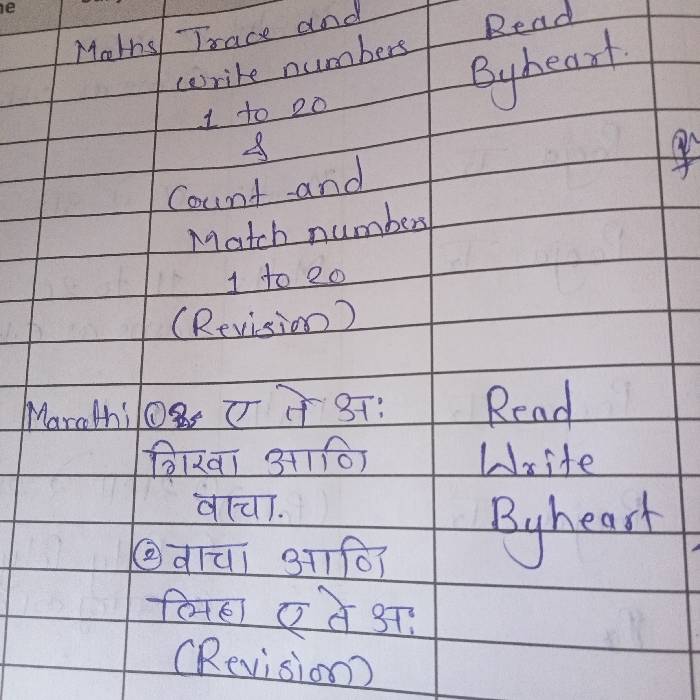 Maths Trace and Read
write numbers Byheart.
1 to 20
&
Count and
Match numbers
1 to 20
(Revision)
Marathi ① ए ते अः Read
गिरवा आणि Write
वाचा. Byheart
② वाचा आणि
लिहा ए ते अः
(Revision)